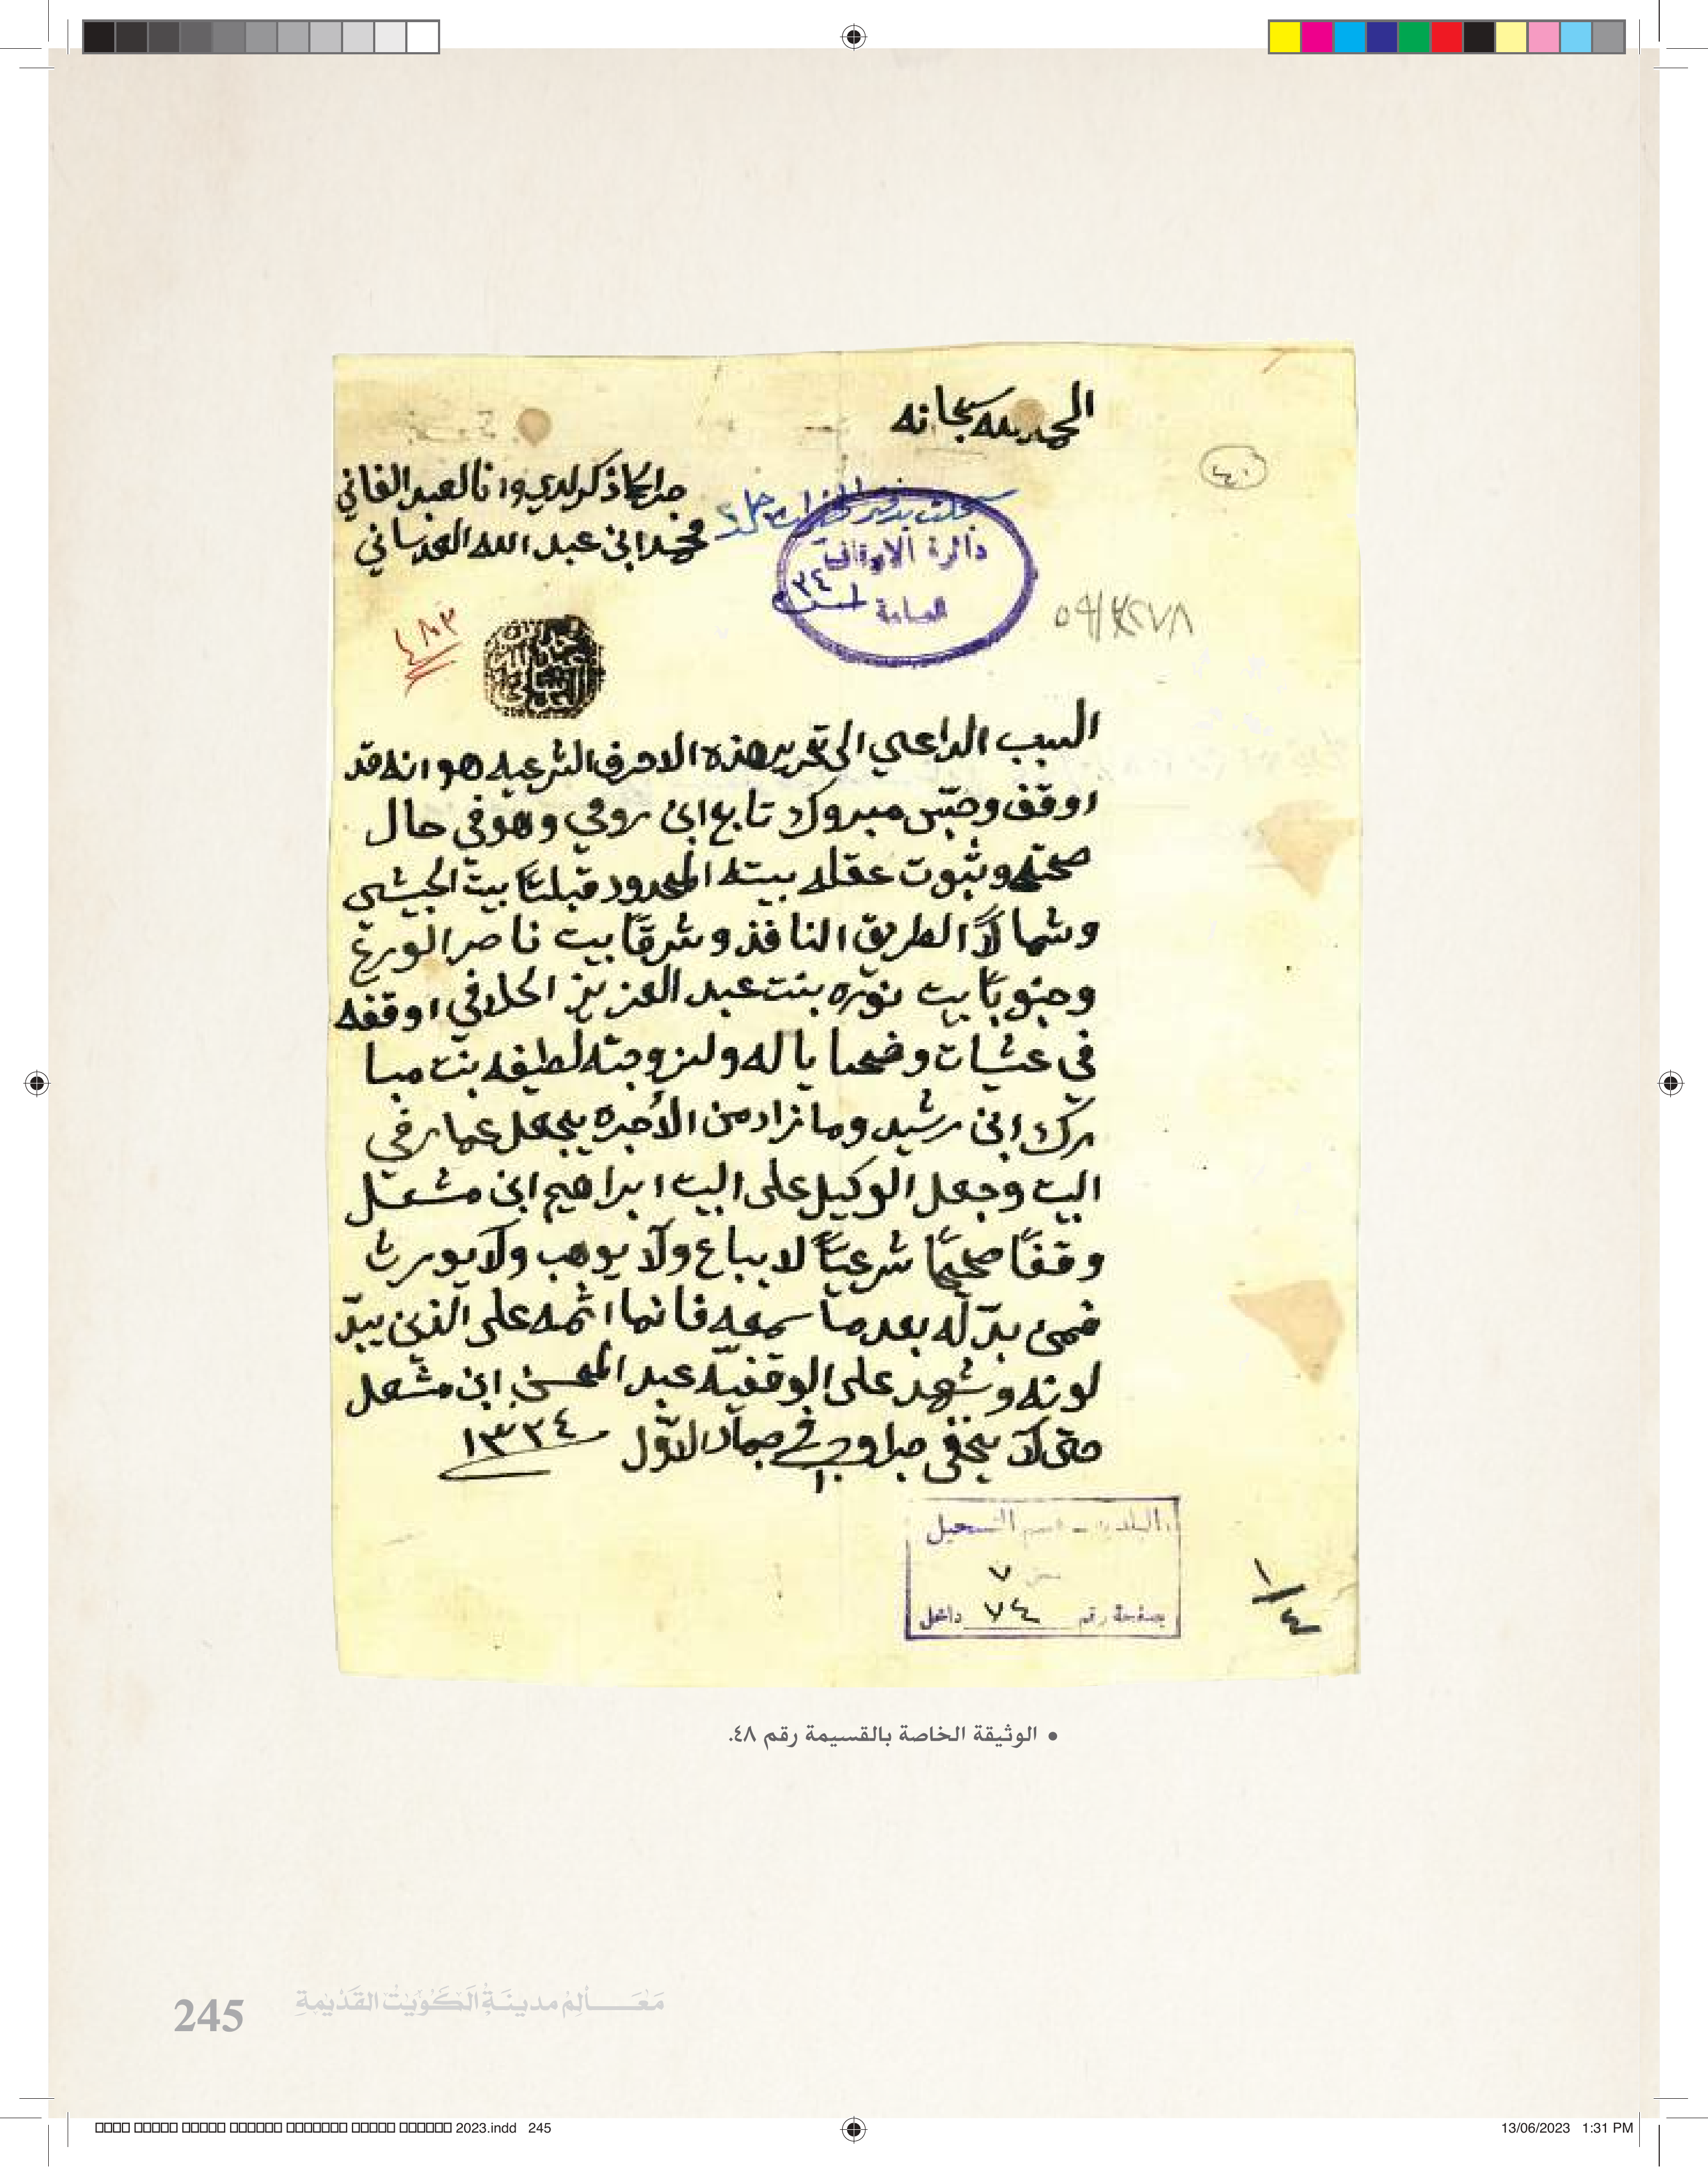 الحمد لله سبحانه
جرا كما ذكر لدي وانا العبد الفاني
محمد ابن عبد الله العدساني
سجلت بدفتر
دائرة الاوقاف
٣٤
العامة
٤٨٣
السبب الداعي الى تحرير هذه الاحرف الشرعيه هو انه قد
اوقف وحبّس مبروك تابع ابن رومي وهو في حال
صحته وثبوت عقله بيته المحدود قبلتاً بيت الحبيشي
وشمالاً الطريق النافذ وشرقاً بيت ناصر الورع
وجنوباً بيت نوره بنت عبد العزيز الحلافي اوقفه
في عشيات وضحايا له ولزوجته لطيفه بنت مبا
رك ابن رشيد وما زاد من الأجره يجعل عمار في
البيت وجعل الوكيل على البيت ابراهيم ابن مشعل
وقفاً صحيحاً شرعياً لا يباع ولا يوهب ولا يورث
فمن بدّله بعد ما سمعه فانما اثمه على الذين يبدّ
لونه وشهد على الوقفيّه عبد المحسن ابن مشعل
حتى لا يخفى جرا وحرر في ١٠ جماد الاوّل ١٣٣٤
البلدية - قسم التسجيل
٧
بصفحة رقم ٧٤ داخل
١/٤
• الوثيقة الخاصة بالقسيمة رقم ٤٨.
245 مَعَالِمُ مدينَةِ الكُوَيْتُ القَدْيمةِ
2023.indd 245
13/06/2023 1:31 PM